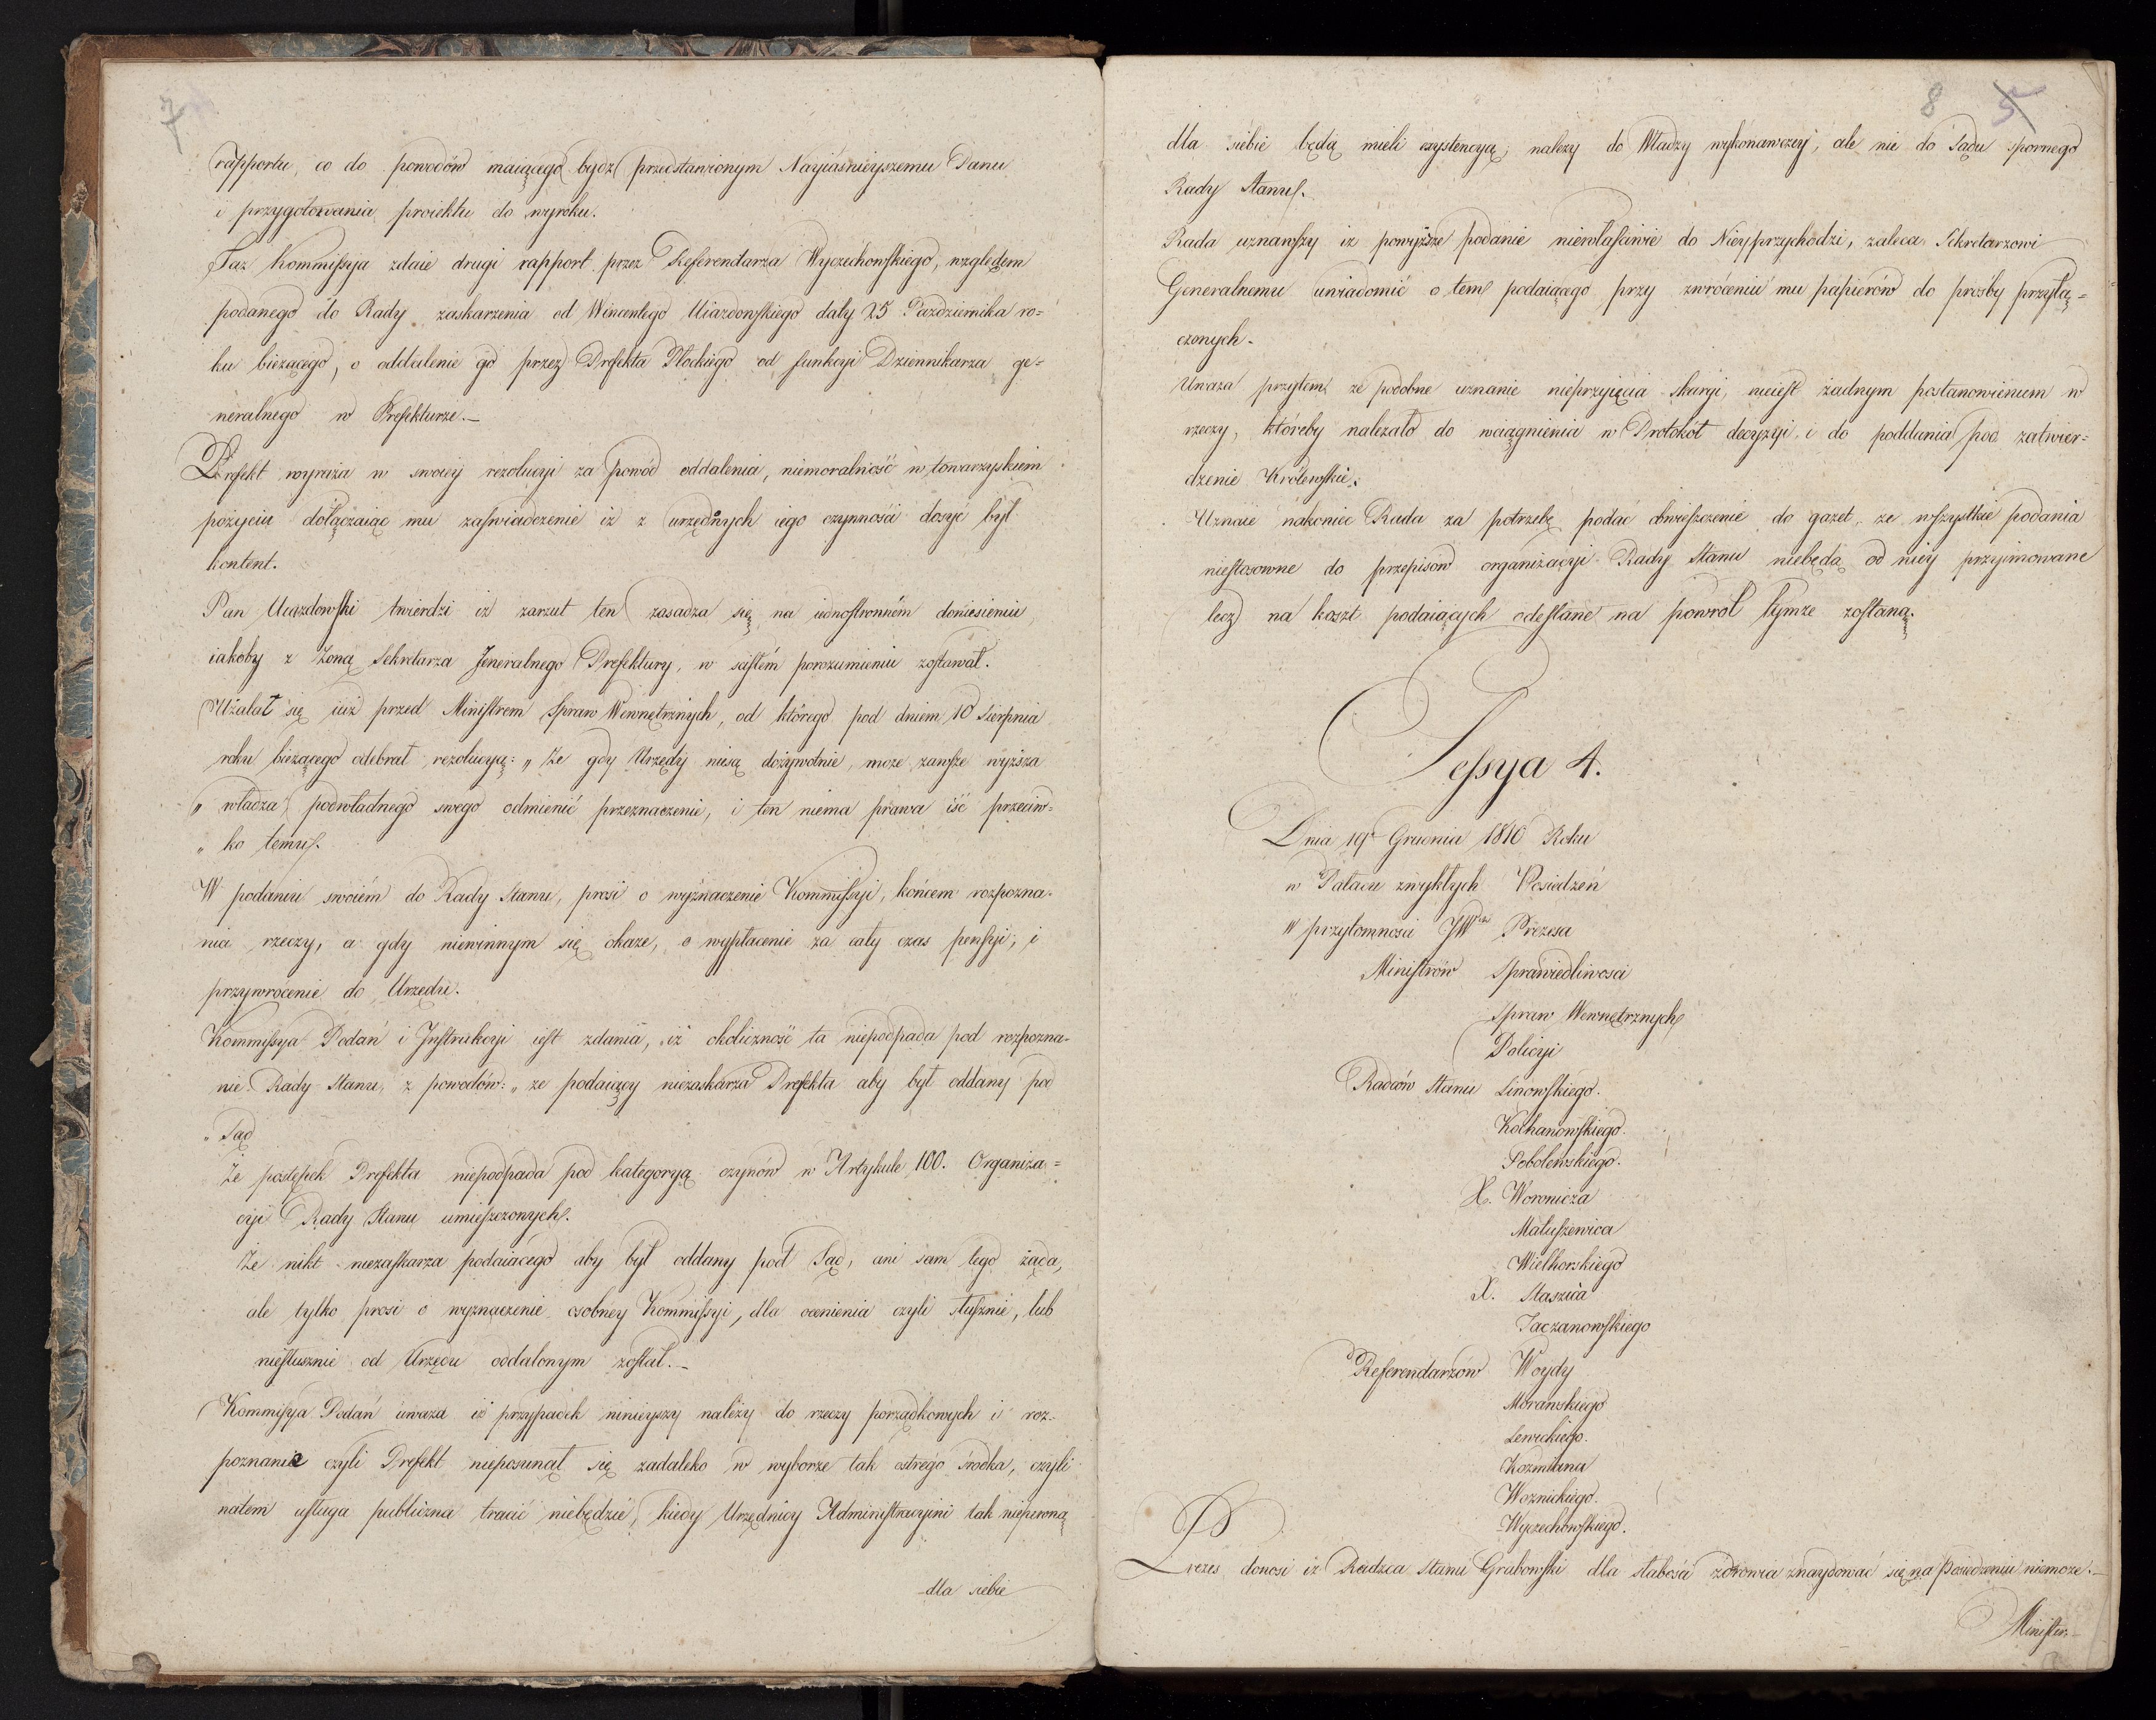 7
rapportu, co do powodów maiącego bydź przedstawionym Nayiaśnieyszemu Panu
i przygotowania proiektu do wyroku.
Taż Kommissyja zdaie drugi rapport przez Referendarza Wyczechowskiego, względem
podanego do Rady zaskarzenia od Wincentego Uiazdowskiego daty 25 Pazdziernika ro=
ku bieżącego, o oddalenie go przez Prefekta Płockiego od funkcyi Dziennikarza ge=
neralnego w Prefekturze.—
Prefekt wyraża w swoiey rezolucyi za powód oddalenia, niemoralność w towarzyskiem
pożyciu dołączaiąc mu zaświadczenie iż z urzędnych iego czynności dosyć był
kontent.
Pan Uiazdowski twierdzi iż zarzut ten zasadza się na iednostronném doniesieniu,
iakoby z żoną Sekretarza Jeneralnego Prefektury, w scisłém porozumieniu zostawał.
Użalał się iuż przed Ministrem Spraw Wewnętrznych, od którego pod dniem 10 Sierpnia
roku bieżącego odebrał rezolucyą: „ Że gdy Urzędy niesą dożywotnie, może zawsze wyższa
„ władza podwładnego swego odmienić przeznaczenie, i ten niema prawa iść przeciw=
„ ko temu.
W podaniu swoiém do Rady Stanu, prosi o wyznaczenie Kommissyi, końcem rozpozna=
nia rzeczy, a gdy niewinnym się okaże, o wypłacenie za cały czas pensyi, i
przywrócenie do Urzędu.
Kommissya Podań i Instrukcyi iest zdania, iż okoliczność ta niepodpada pod rozpozna=
nie Rady Stanu, z powodów: „ że podaiący niezaskarza Prefekta aby był oddany pod
„ Sąd
Że postępek Prefekta niepodpada pod kategoryą czynów w Artykule 100. Organiza=
cyi Rady Stanu umieszczonych.
Że nikt niezaskarza podaiącego aby był oddany pod Sąd, ani sam tego żąda,
ale tylko prosi o wyznaczenie osobney Kommissyi, dla ocenienia czyli słusznie, lub
niesłusznie od Urzędu oddalonym został.—
Kommissya Podań uważa iż przypadek ninieyszy należy do rzeczy porządkowych i roz=
poznanie czyli Prefekt nieposunął się zadaleko w wyborze tak ostrego środka, czyli
natem usługa publiczna tracić niebędzie, kiedy Urzędnicy Administracyini tak niepewną
dla siebie
8 5
dla siebie będą mieli exystencyą, należy do Władzy wykonawczey, ale nie do Sądu spornego
Rady Stanu.
Rada uznawszy iż powyższe podanie niewłaściwie do Niey przychodzi, zaleca Sekretarzowi
Generalnemu uwiadomić o tem podaiącego przy zwróceniu mu papierów do prośby przyłą=
czonych.
Uważa przytem że podobne uznanie nieprzyięcia skargi, nieiest żadnym postanowieniem w
rzeczy, któreby należało do wciągnienia w Protokół decyzyi, i do poddania pod zatwier=
dzenie Królewskie.
Uznaie nakoniec Rada za potrzebę podać obwieszczenie do gazet, że wszystkie podania
niestosowne do przepisów organizacyi Rady Stanu niebędą od niey przyimowane
lecz na koszt podaiących odesłane na powrót tymże zostaną.
Sessya 4.
Dnia 19 Grudnia 1810 Roku
w Pałacu zwykłych Posiedzeń
W przytomności JW Prezesa
Ministrów Sprawiedliwości
Spraw Wewnętrznych
Policyi
Radców Stanu Linowskiego.
Kochanowskiego.
Sobolewskiego.
X. Woronicza
Matuszewica
Wielhorskiego
X. Staszica
Taczanowskiego
Referendarzów Woydy
Morawskiego
Lewickiego.
Kozmiana
Woznickiego.
Wyczechowskiego.
Prezes donosi iż Radzca Stanu Grabowski dla słabości zdrowia znaydować się na Posiedzeniu niemoże.—
Minister